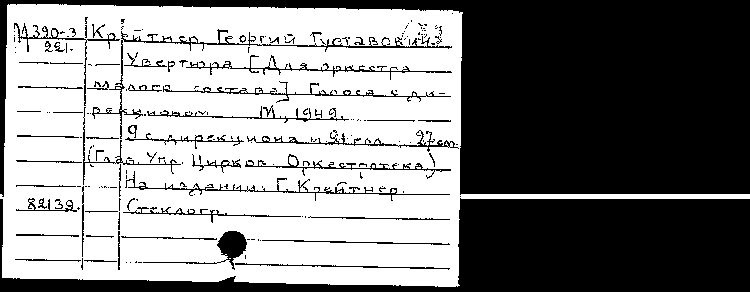 М 390-3 Крейтнер, Георгий Густавович.
221. Увертюра [Для оркестра
малого состава]. Голоса с ди-
рекционом. М., 1949.
9 с. дирекциона и 21 гол. 27 см
(Глав. Упр. Цирков. Оркестротека)
На издании: Г. Крейтнер.
82139. Стеклогр.